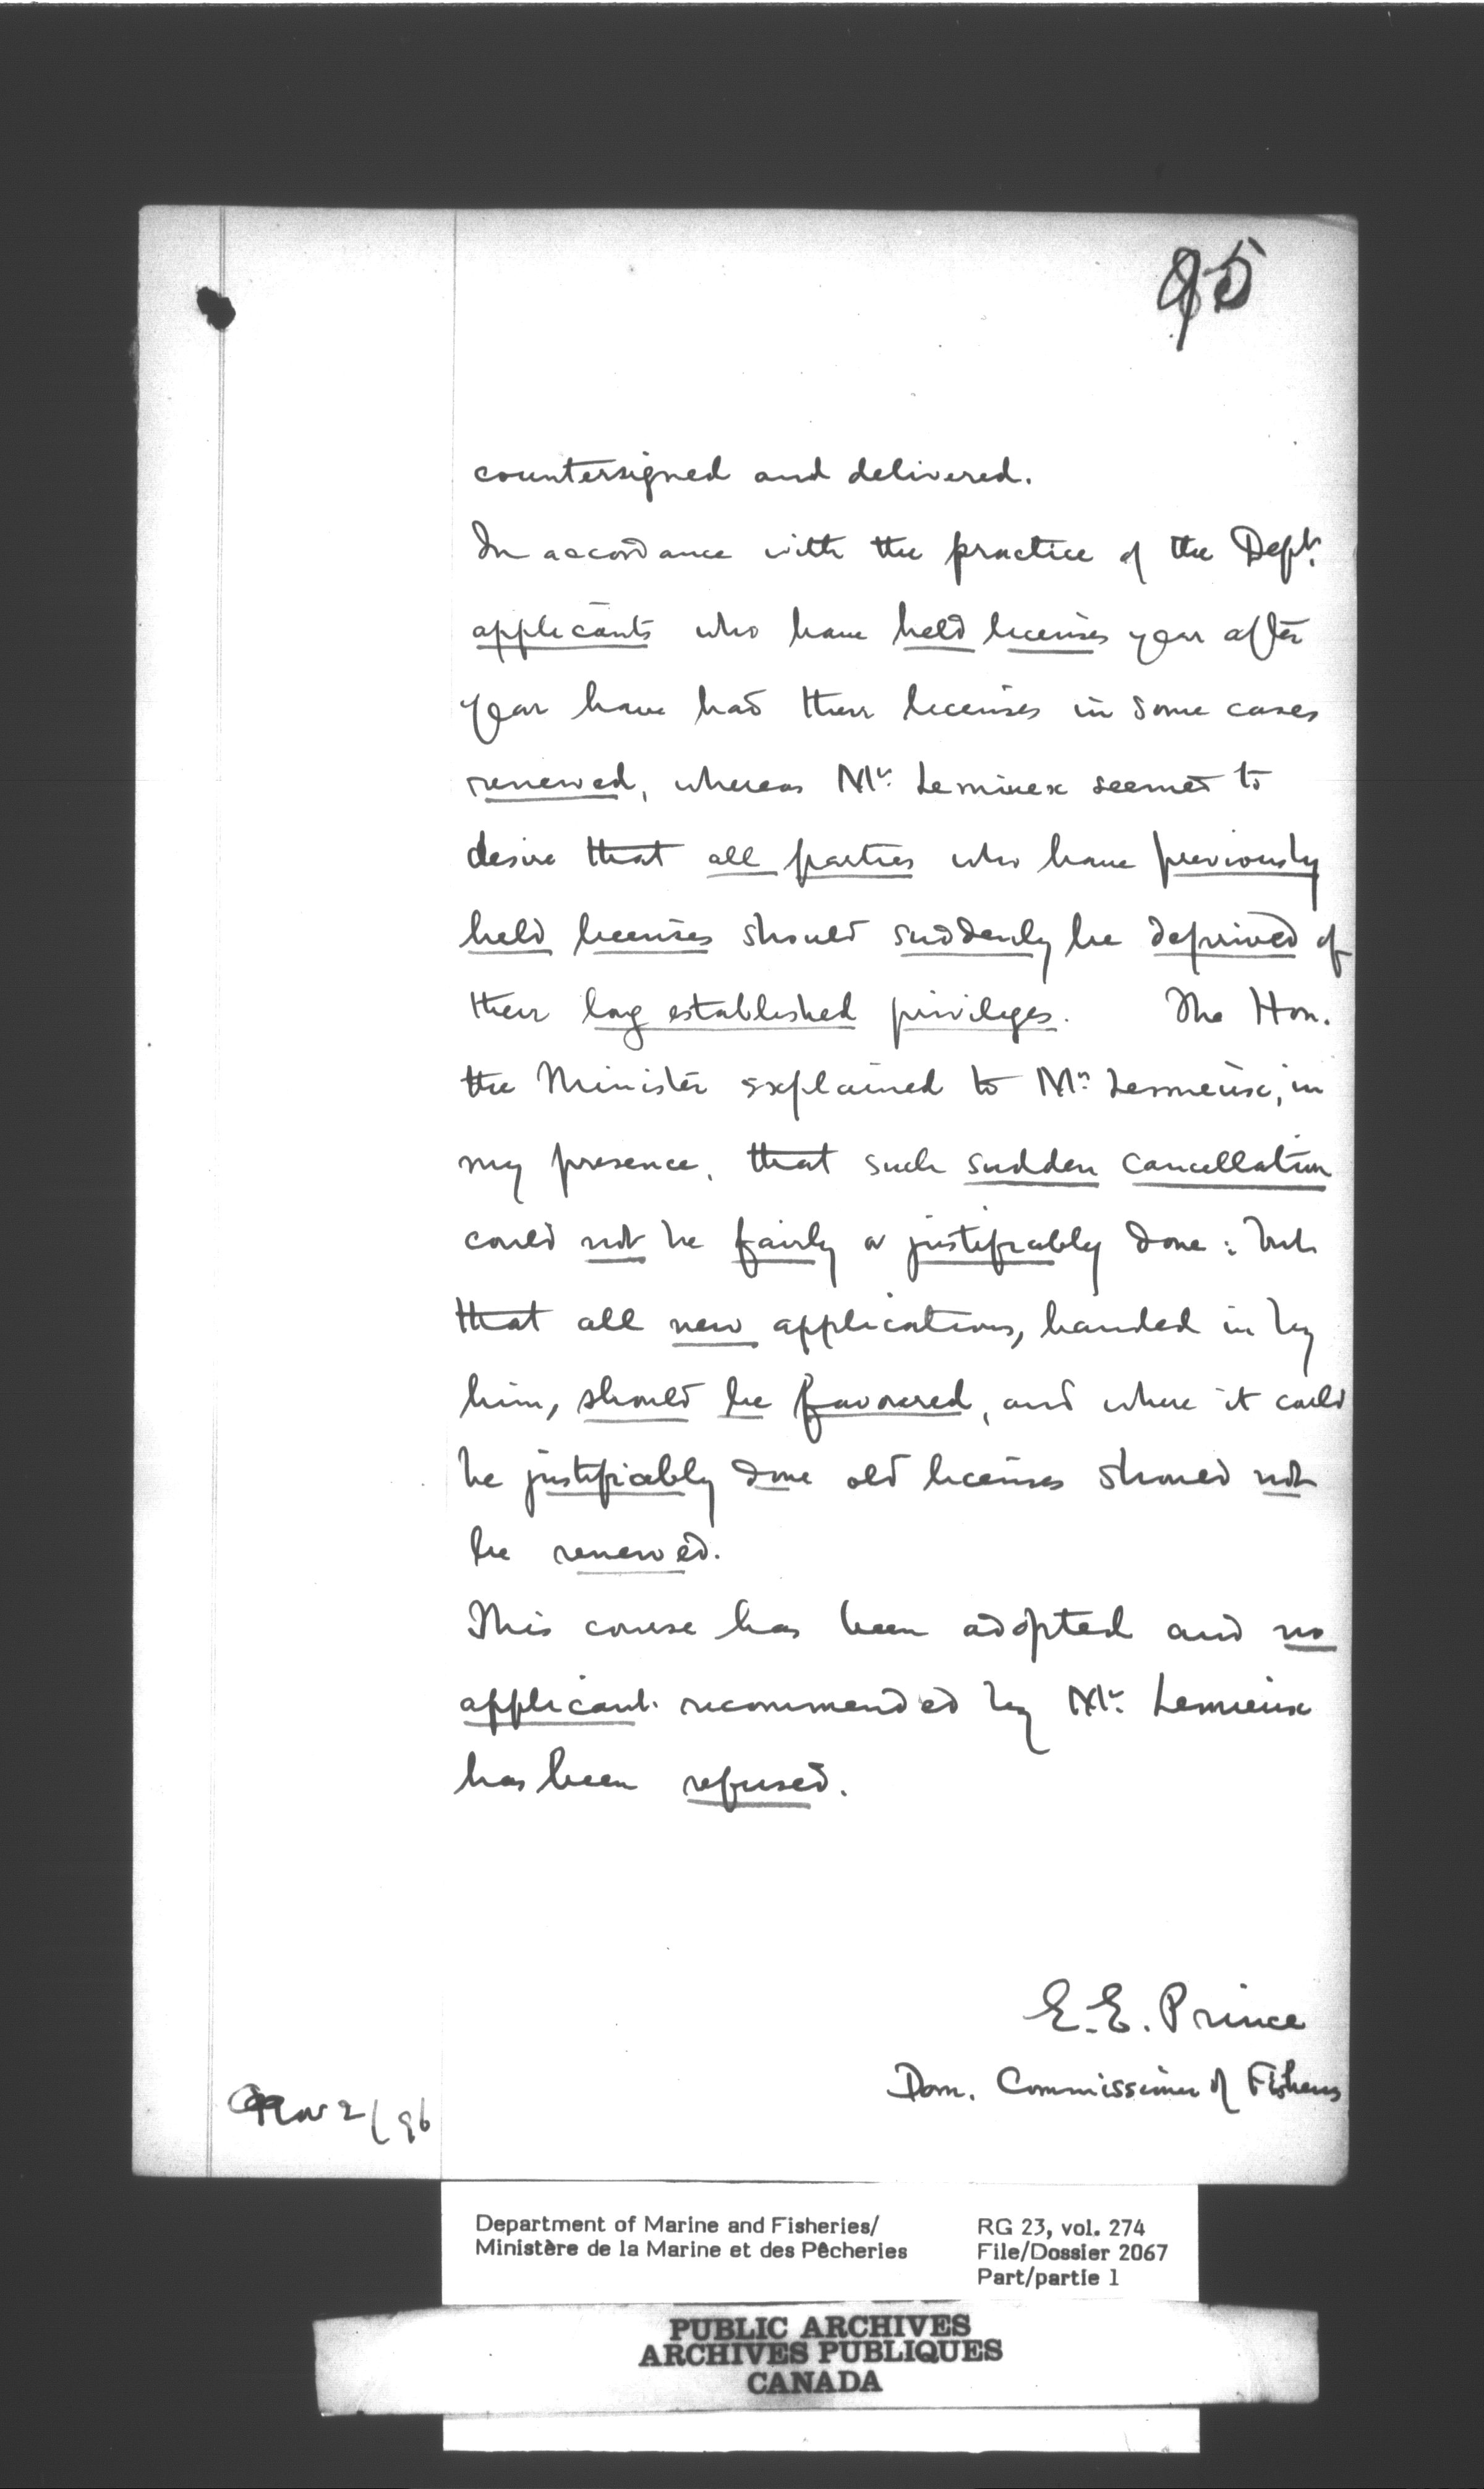 95
countersigned and delivered.
In accordance with the practice of the Dept.
applicants who have held licenses year after
year have had their licenses in some cases
renewed, whereas Mr. Lemieux seemed to
desire that all parties who have previously
held licenses should suddenly be deprived of
their long established privileges. The Hon.
the Minister explained to Mr. Lemieux, in
my presence, that such sudden cancellation
could not be fairly or justifiably done: but
that all new applications, handed in by
him, should be favored, and where it could
be justifiably done old licenses should not
be renewed.
This course has been adopted and no
applicant recommended by Mr. Lemieux
has been refused.
E.E. Prince
Dom. Commissioner of Fisheries
2/96
Department of Marine and Fisheries/
Ministère de la Marine et des Pêcheries
RG 23, vol. 274
File/Dossier 2067
Part/partie 1
PUBLIC ARCHIVES
ARCHIVES PUBLIQUES
CANADA